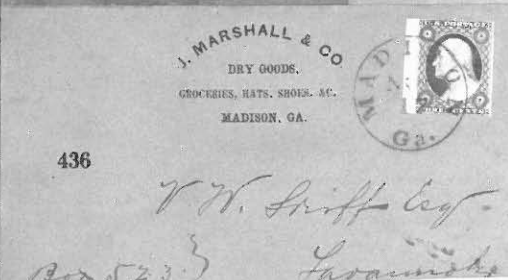 J. MARSHALL & CO
DRY GOODS,
GROCERIES, HATS, SHOES, &C.
MADISON, GA.
MADISON
Ga.
436
W. Esq.
Box 523
Savannah